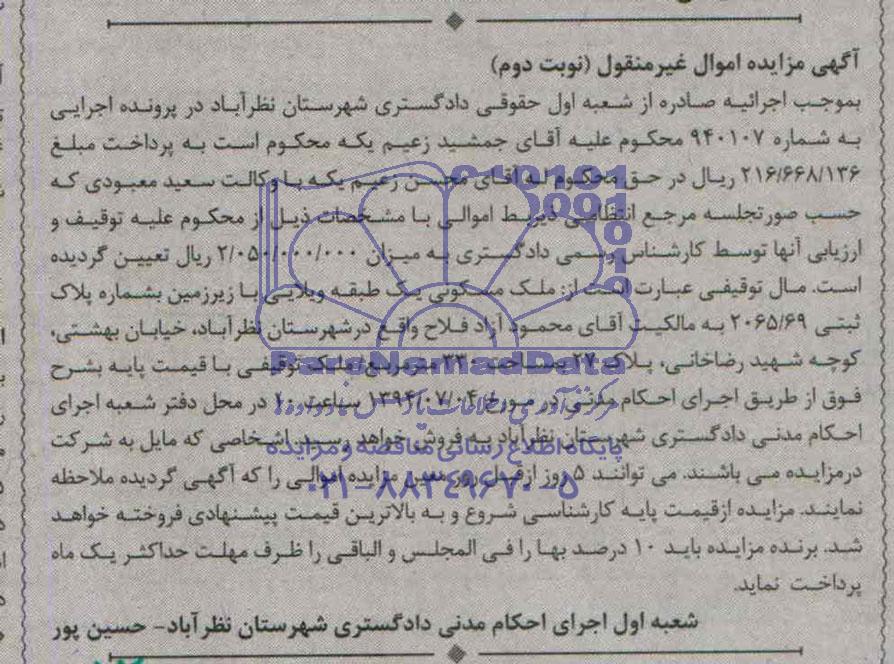 آگهی مزایده اموال غیرمنقول (نوبت دوم)
بموجب اجرائیه صادره از شعبه اول حقوقی دادگستری شهرستان نظرآباد در پرونده اجرایی
به شماره ۹۴۰۱۰۷ محکوم علیه آقای جمشید زعیم یکه محکوم است به پرداخت مبلغ
۲۱۶/۶۶۸/۱۳۶ ریال در حق محکوم له آقای محسن زعیم یکه با وکالت سعید معبودی که
حسب صورتجلسه مرجع انتظامی ذیربط اموالی با مشخصات ذیل از محکوم علیه توقیف و
ارزیابی آنها توسط کارشناس رسمی دادگستری به میزان ۲/۰۵۰/۰۰۰/۰۰۰ ریال تعیین گردیده
است. مال توقیفی عبارت است از: ملک مسکونی یک طبقه ویلایی با زیرزمین بشماره پلاک
ثبتی ۲۰۶۵/۶۹ به مالکیت آقای محمود آزاد فلاح واقع درشهرستان نظرآباد، خیابان بهشتی،
کوچه شهید رضاخانی، پلاک ۲۷ بمساحت ۳۳۰ مترمربع، ملک توقیفی با قیمت پایه بشرح
فوق از طریق اجرای احکام مدنی در مورخ ۱۳۹۴/۰۷/۰۴ ساعت ۱۰ در محل دفتر شعبه اجرای
احکام مدنی دادگستری شهرستان نظرآباد به فروش خواهد رسید. اشخاصی که مایل به شرکت
درمزایده می باشند. می توانند ۵ روز ازقبل روز معین مزایده اموالی را که آگهی گردیده ملاحظه
نمایند. مزایده ازقیمت پایه کارشناسی شروع و به بالاترین قیمت پیشنهادی فروخته خواهد
شد. برنده مزایده باید ۱۰ درصد بها را فی المجلس و الباقی را ظرف مهلت حداکثر یک ماه
پرداخت نماید.
شعبه اول اجرای احکام مدنی دادگستری شهرستان نظرآباد- حسین پور
ParsNamadData
پایگاه اطلاع رسانی مناقصه و مزایده
۰۲۱-۸۸۳۴۹۶۷۰-۵